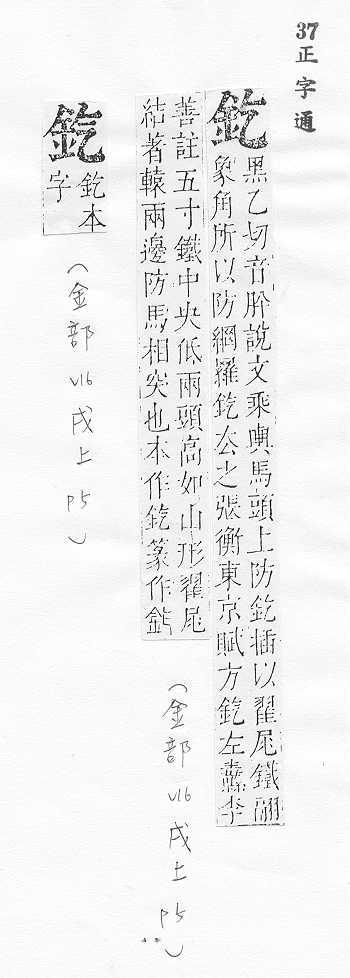 37
正字通
釳
黑乙切音肸說文乘輿馬頭上防釳插以翟尾鐵翮
象角所以防網羅釳去之張衡東京賦方釳左纛李
善註五寸鐵中央低兩頭高如山形翟尾
結著轅兩邊防馬相突也本作釳篆作釳
(金部 V16 戌上 P5)
釳
釳本
字
(金部 V16 戌上 P5)